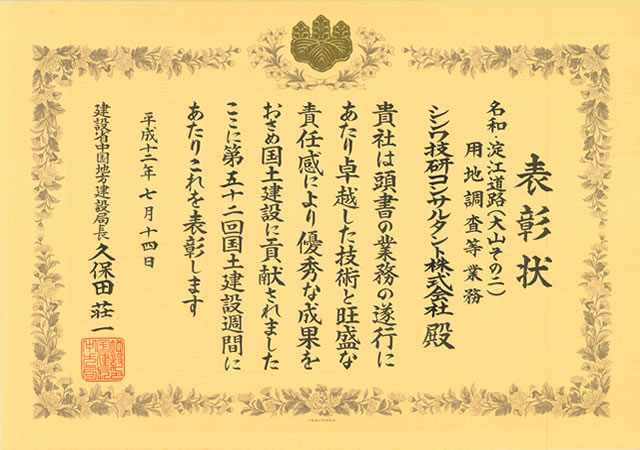 表彰状
名和・淀江道路（大山その二）
用地調査等業務
シンワ技研コンサルタント株式会社 殿
貴社は頭書の業務の遂行に
あたり卓越した技術と旺盛な
責任感により優秀な成果を
おさめ国土建設に貢献されました
ここに第五十二回国土建設週間に
あたりこれを表彰します
平成十二年七月十四日
建設省中国地方建設局長 久保田荘一